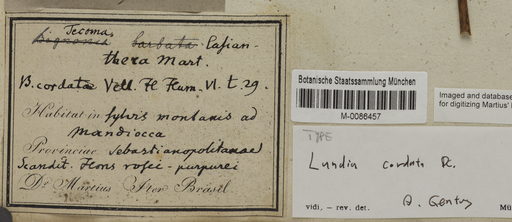 Tecoma
Bignonia barbata Lasian-
thera Mart.
B. cordata Vell. Fl. Flum. VI. t. 29.
Habitat in sylvis montanis ad
Mandiocca
Provinciae Sebastianopolitanae
Scandit. Flores rosei-purpurei
Dr. Martius Iter Brasil
Botanische Staatssammlung München
M-0086457
Imaged and database
for digitizing Martius'
TYPE
Lundia cordata DC.
vidi, – rev. det. A. Gentry Mü